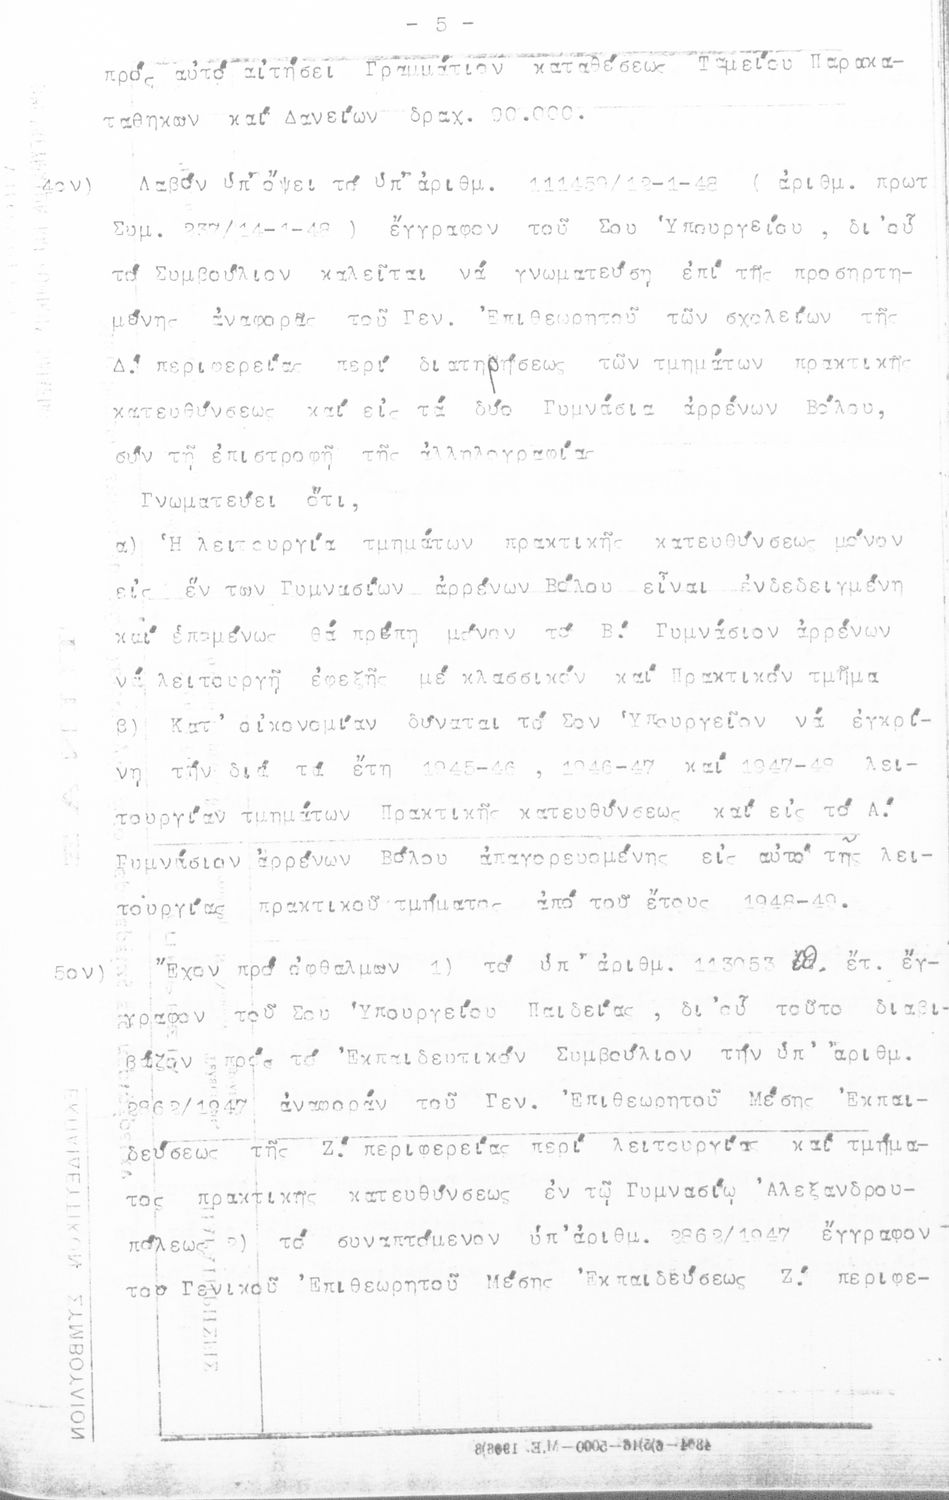 - 5 -
πρός αὐτό αἰτήσει Γραμμάτιον καταθέσεως Ταμείου Παρακα-
ταθηκων καί Δανείων δραχ. 90.000.
4ον) Λαβόν ὑπ' ὄψει τό ὑπ' ἀριθμ. 111459/12-1-48 ( ἀριθμ. πρωτ
Συμ. 237/14-1-48 ) ἔγγραφον τοῦ Σου Ὑπουργείου , δι' οὗ
τό Συμβούλιον καλεῖται νά γνωματεύσῃ ἐπί τῆς προσηρτη-
μένης ἀναφορᾶς τοῦ Γεν. Ἐπιθεωρητοῦ τῶν σχολείων τῆς
Δ.' περιφερείας περί διατηρήσεως τῶν τμημάτων πρακτικῆς
κατευθύνσεως καί εἰς τά δύο Γυμνάσια ἀρρένων Βόλου,
σύν τῇ ἐπιστροφῇ τῆς ἀλληλογραφίας
Γνωματεύει ὅτι,
α) Ἡ λειτουργία τμημάτων πρακτικῆς κατευθύνσεως μόνον
εἰς ἕν των Γυμνασίων ἀρρένων Βόλου εἶναι ἐνδεδειγμένη
καί ἑπομένως θά πρέπῃ μόνον τό Β.' Γυμνάσιον ἀρρένων
νά λειτουργῇ ἐφεξῆς μέ κλασσικόν καί Πρακτικόν τμῆμα
β) Κατ' οἰκονομίαν δύναται τό Σον Ὑπουργεῖον νά ἐγκρί-
νῃ τήν διά τά ἔτη 1945-46 , 1946-47 καί 1947-48 λει-
τουργίαν τμημάτων Πρακτικῆς κατευθύνσεως καί εἰς τό Α.'
Γυμνάσιον ἀρρένων Βόλου ἀπαγορευομένης εἰς αὐτό τῆς λει-
τουργίας πρακτικοῦ τμήματος ἀπό τοῦ ἔτους 1948-49.
5ον) Ἔχον πρό ὀφθαλμων 1) τό ὑπ' ἀριθμ. 113053 ἔτ. ἔγ-
γραφον τοῦ Σου Ὑπουργείου Παιδείας , δι' οὗ τοῦτο διαβι-
βάζον πρός τό Ἐκπαιδευτικόν Συμβούλιον τήν ὑπ' ἀριθμ.
2862/1947 ἀναφοράν τοῦ Γεν. Ἐπιθεωρητοῦ Μέσης Ἐκπαι-
δεύσεως τῆς Ζ.' περιφερείας περί λειτουργίας καί τμήμα-
τος πρακτικῆς κατευθύνσεως ἐν τῷ Γυμνασίῳ Ἀλεξανδρου-
πόλεως 2) τό συναπτόμενον ὑπ' ἀριθμ. 2862/1947 ἔγγραφον
του Γενικοῦ Ἐπιθεωρητοῦ Μέσης Ἐκπαιδεύσεως Ζ.' περιφε-
ΕΚΠΑΙΔΕΥΤΙΚΟΝ ΣΥΜΒΟΥΛΙΟΝ